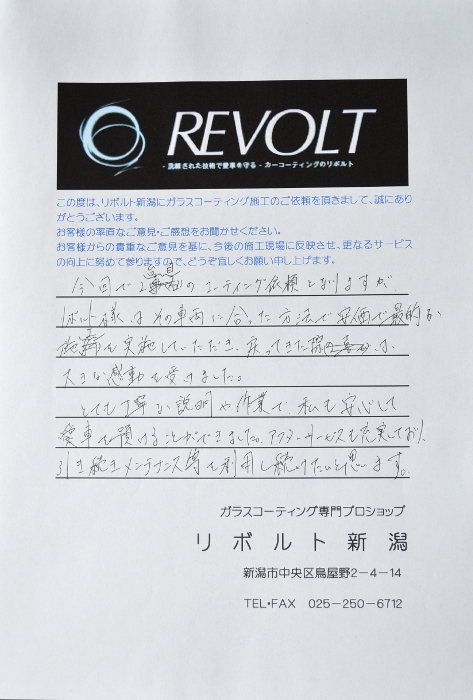 REVOLT
- 洗練された技術で愛車を守る - カーコーティングのリボルト
この度は、リボルト新潟にガラスコーティング施工のご依頼を頂きまして、誠にあり
がとうございます。
お客様の率直なご意見・ご感想をお聞かせください。
お客様からの貴重なご意見を基に、今後の施工現場に反映させ、更なるサービス
の向上に努めて参りますので、どうぞ宜しくお願い申し上げます。
今回で2台目のコーティング依頼となりますが、
リボルト様は、その車両に合った方法で安価で最的な
施工を実施していただき、戻ってきた際は、
大きな感動を受けました。
とても丁寧な説明や作業で、私も安心して
愛車を預けることができました。アフターサービスも充実しており、
引き続きメンテナンス等を利用し続けたいと思います。
ガラスコーティング専門プロショップ
リボルト新潟
新潟市中央区鳥屋野2-4-14
TEL・FAX 025-250-6712